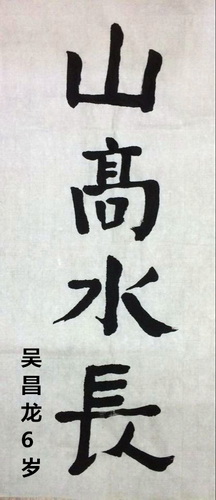 山髙水長
吴昌龙6岁